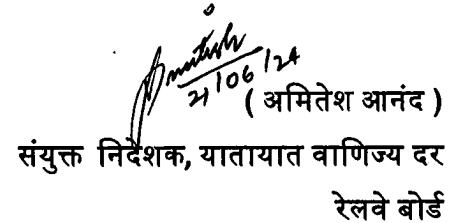 Amitesh
21/06/24
( अमितेश आनंद )
संयुक्त निदेशक, यातायात वाणिज्य दर
रेलवे बोर्ड